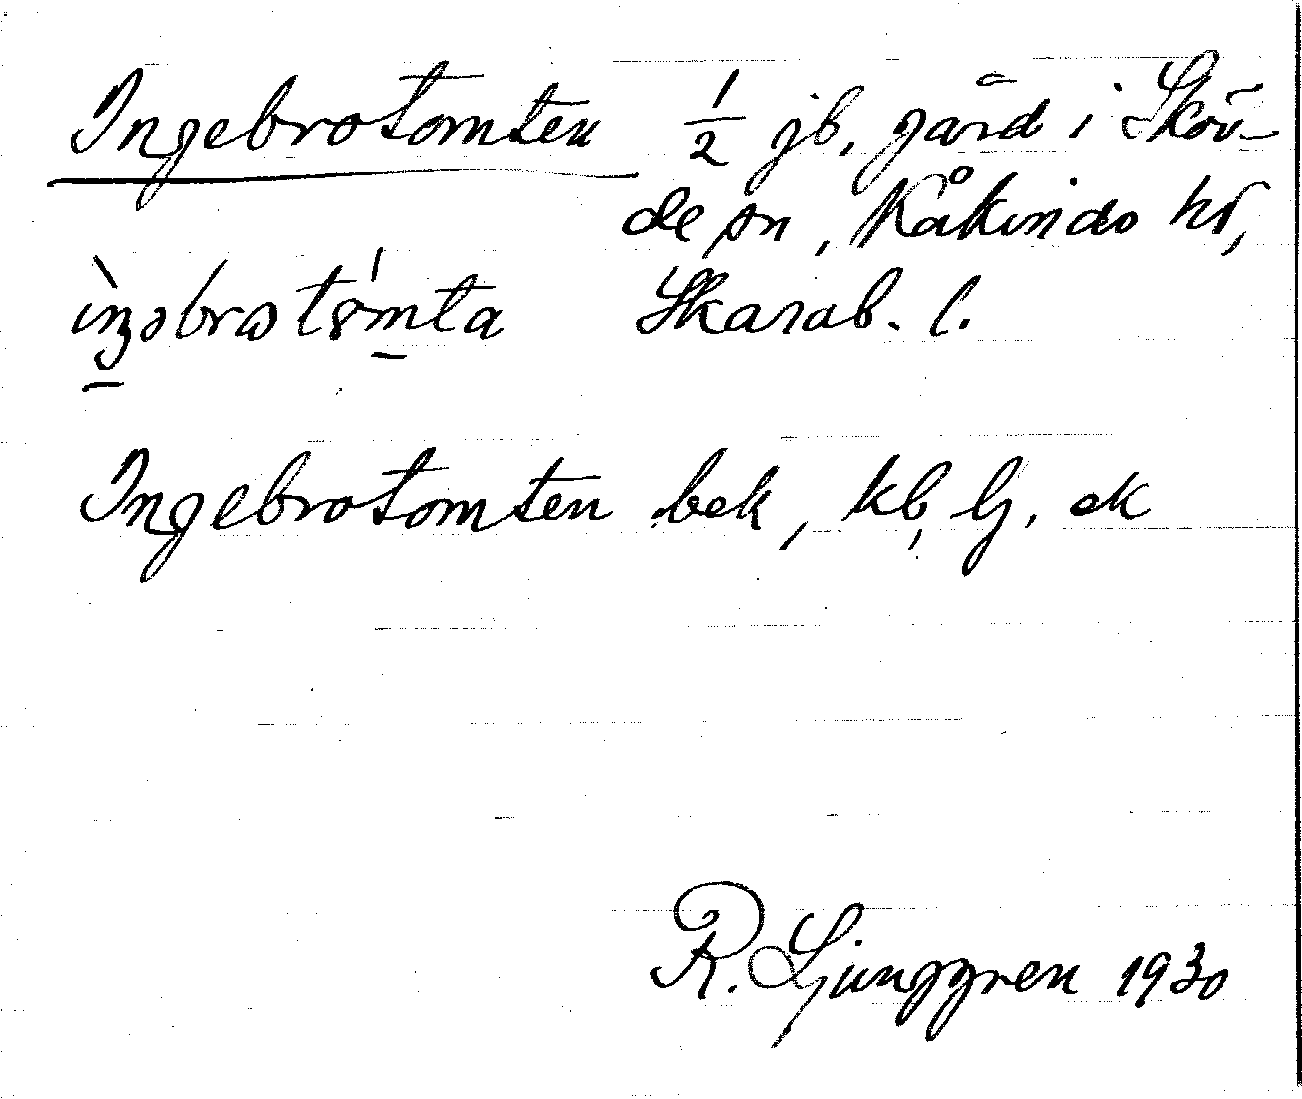 Ingebrotomten ½ jb. gård i Sköv-
de sn, Kåkinds hd,
Skarab. l.
Ingebrotomten bek, kb, lj. ek
R. Ljunggren 1930